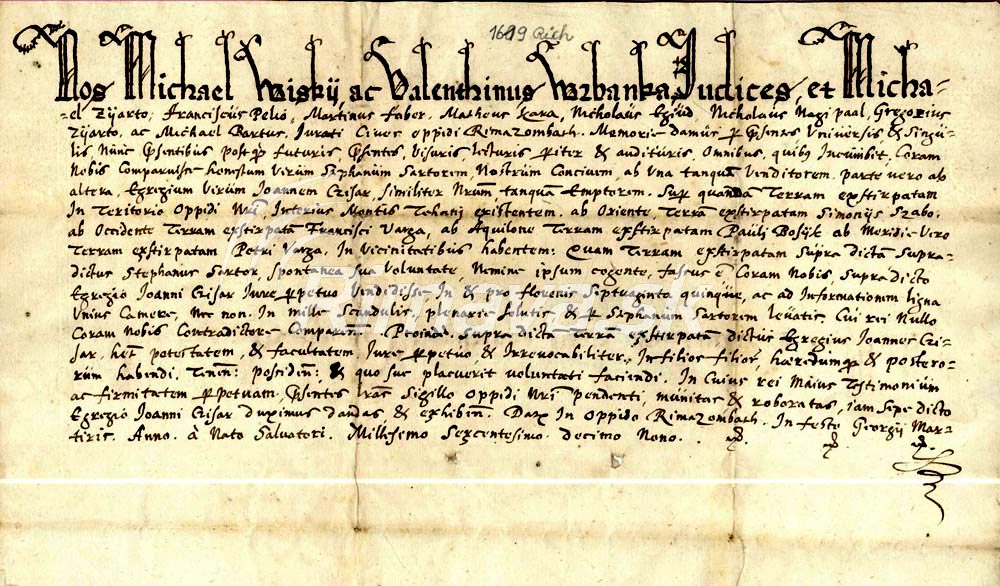 1619 Rich
Nos Michael Wiskÿ, ac Valenthinus Vrbanka Judices, et Micha-
el Zÿarto, Franciscus Peliö, Martinus Faber, Matheus Kara, Nicholaus Egiüd, Nicholaüs Nagi paal, Gregorius
Zÿarto, ac Michael Bartus, Jurati Ciues oppidi Rimazombath. Memorie damus ꝑ pñsentes Vniuersis & Singu-
lis, Nunc pñsentibus postqʒ futuris, pñsentes, Visuris lecturis ꝑiter & audituris, Omnibus, quibꝯ Incumbit, Coram
Nobis Comparuisse honestum Virum Stephanum Sartorem, Nostrum Conciuem, ab Vna tanquã Venditorem, parte vero ab
altera, Egregium Virum Joannem Crisar, similiter Nrũm tanquam Emptorem. Supr quandã Terram exstirpatam
In Teritorio Oppidi Nrĩ, Interius Montis Tehanÿ existentem, ab Oriente, Terrã exstirpatam Simonijs Szabo,
ab Occidente Terram exstirpatã Francisci Varga, ab Aquilone Terram exstirpatam Paulj Bosÿk ab Meridie Vero
Terram exstirpatam Petri Varga, In Vicinitatibus habentem: Quam Terram exstirpatam Supra dictã Supra-
dictus Stephanus Sortor, spontanea sua Voluntate Nemine ipsum cogente, fassus ẽ Coram Nobis, Supra dicto
Egregio Joanni Crisar Jure ꝑpetuo Vendidisse, In & pro florenis Septuaginta quinque, ac ad Informationem ligna
Vnius Camere, Nec non, In mille Scindulis, plenarie solutis, & ꝑ Stephanum Sartorem leuatis. Cui rei Nullo
Coram Nobis Contradictore Comparen̄. Proinde Supra dictã terrã exstirpatã, dictus Egregius Joannes Cri-
sar, het potestatem, & facultatem Jure ꝑpetuo & Irreuocabiliter, In filios filior, hæredumqʒ & postero-
rum habendi, Tenen̄: possiden̄: & quo sue placuerit voluntati faciendi. In Cuius rei Maius Testimonium
ac firmitatem ꝑpetuam, pñsentes lrãs Sigillo Oppidi Nrĩ pendenti, munitas & roboratas, iam sepe dicto
Egregio Joanni Crisar duximus dandas & exhiben̄. Datæ In Oppido Rimazombath. In festo Georgÿ Mar-
tiris. Anno. à Nato Saluatori. Millesimo Sexcentesimo. decimo Nono.